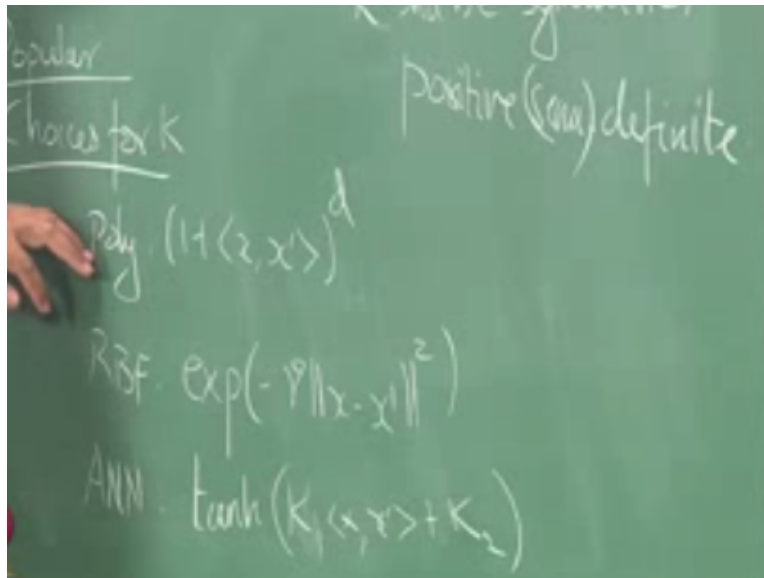 positive (semi) definite
Popular
Choices for K
Poly. (1+<x,x'>)^d
RBF. exp(-γ||x-x'||^2)
ANN. tanh(K_1<x,x'>+K_2)